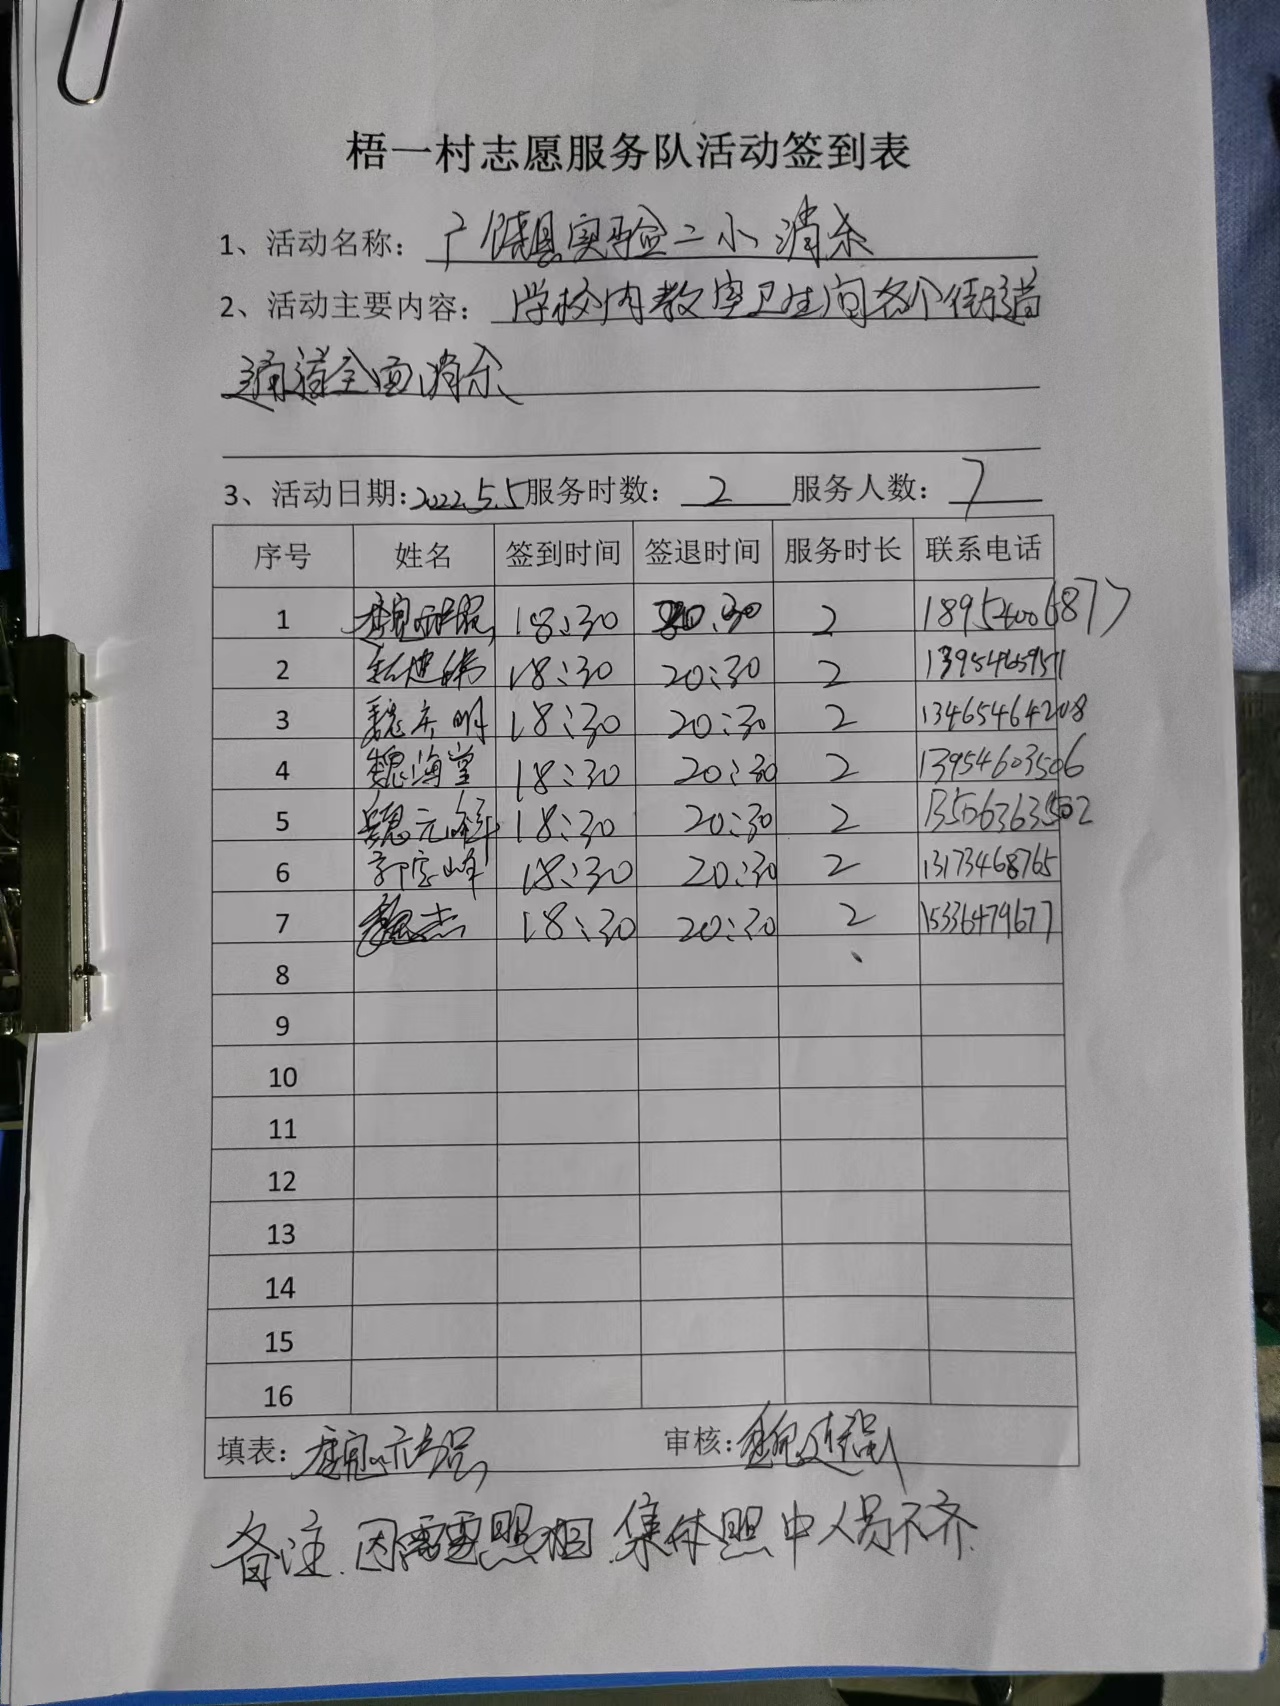 梧一村志愿服务队活动签到表
1、活动名称: 广饶县实验二小消杀
2、活动主要内容: 学校内教室卫生间各个街道
通道全面消杀
3、活动日期: 2022.5.5 服务时数: 2 服务人数: 7
序号 姓名 签到时间 签退时间 服务时长 联系电话
1 魏 18:30 20:30 2 18954006877
2 18:30 20:30 2 13954659511
3 魏 明 18:30 20:30 2 13465464208
4 魏海堂 18:30 20:30 2 13954603506
5 魏元 18:30 20:30 2
6 郭 峰 18:30 20:30 2 13173468765
7 魏杰 18:30 20:30 2 15336479677
8
9
10
11
12
13
14
15
16
填表: 魏 审核: 魏连强
备注.因需要照相 集体照中人员不齐.